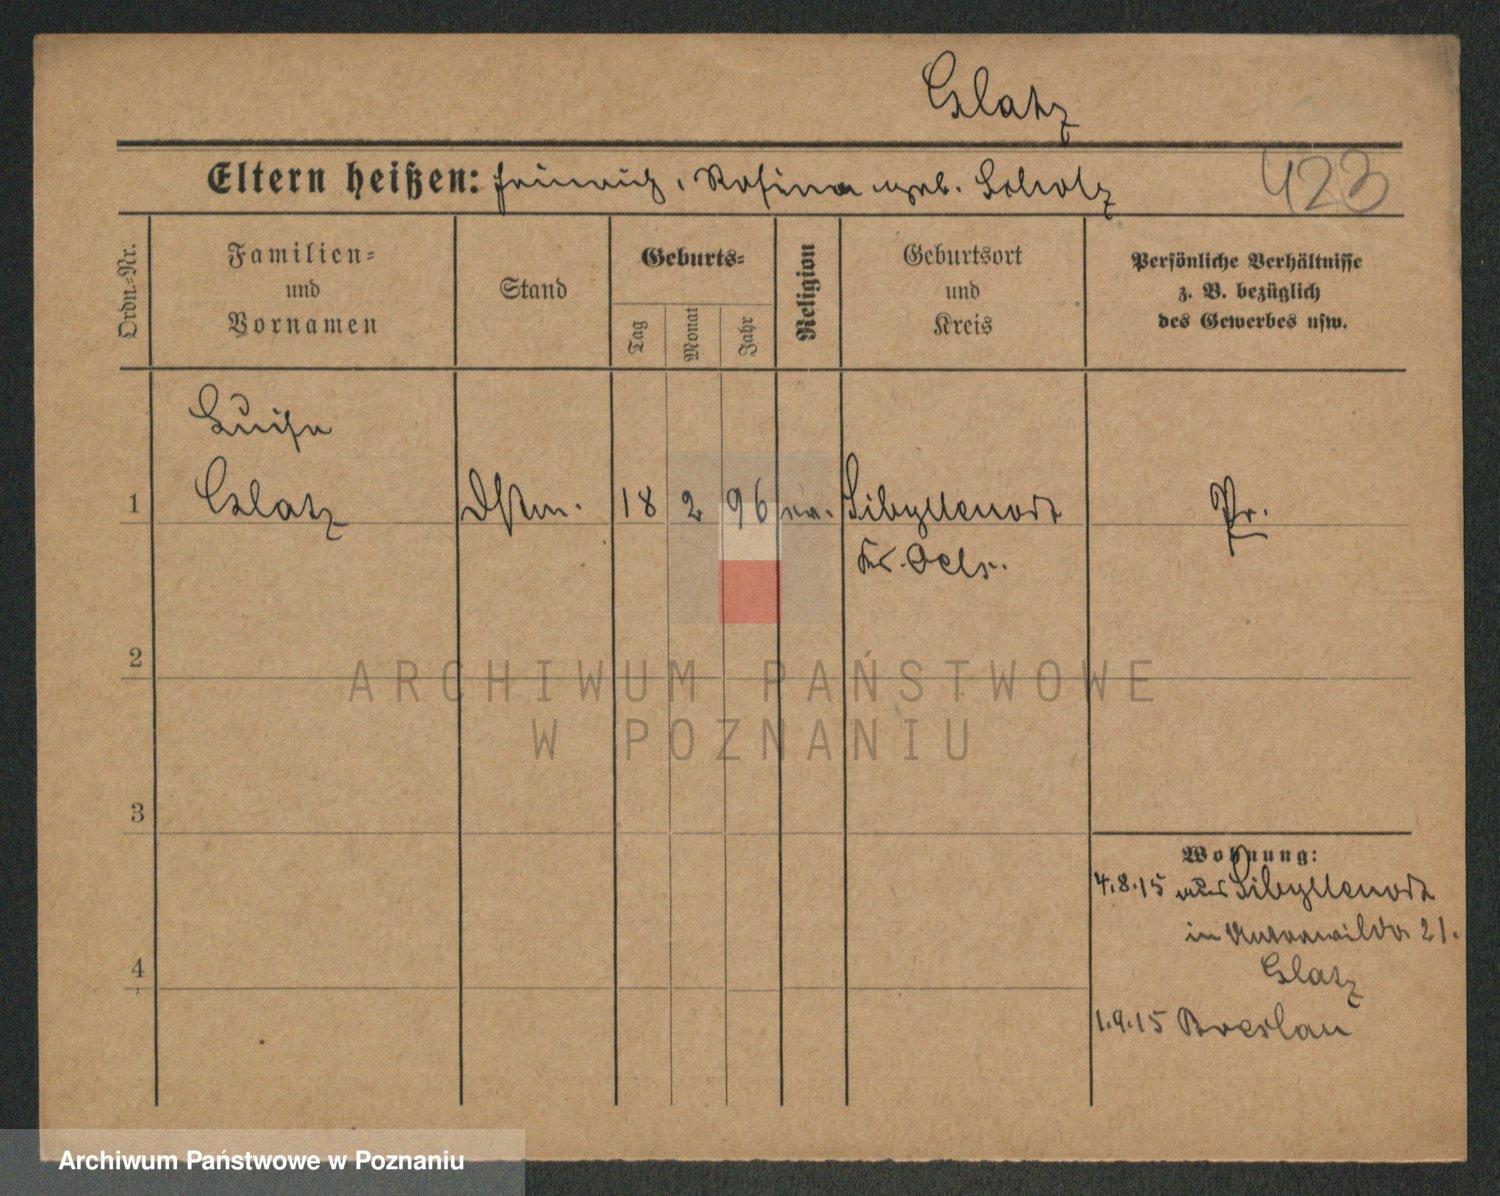 Glatz
Eltern heißen: Heinrich, Rosina geb. Scholz
423
Ordn.-Nr.
Familien-
und
Vornamen
Stand
Geburts-
Tag
Monat
Jahr
Religion
Geburtsort
und
Kreis
Persönliche Verhältnisse
z. B. bezüglich
des Gewerbes usw.
Luise
1 Glatz Dstm. 18 2 96 ev. Sibyllenort Pr.
Kr. Oels.
2
3
4
Wohnung:
4.8.15 aus Sibyllenort
in Unterwilda 21.
Glatz
1.9.15 Breslau
ARCHIWUM PAŃSTWOWE
W POZNANIU
Archiwum Państwowe w Poznaniu